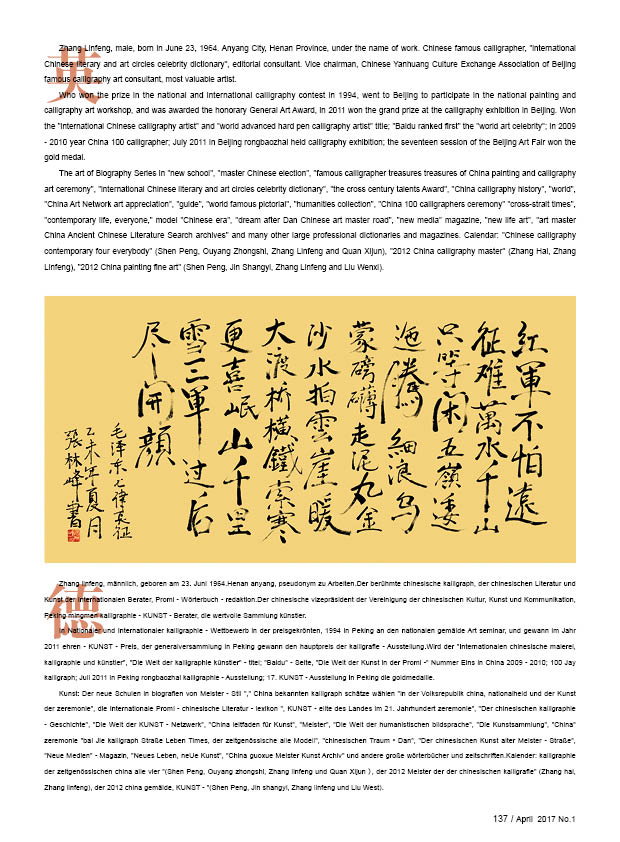 英
Zhang Linfeng, male, born in June 23, 1964. Anyang City, Henan Province, under the name of work. Chinese famous calligrapher, "international
Chinese literary and art circles celebrity dictionary", editorial consultant. Vice chairman, Chinese Yanhuang Culture Exchange Association of Beijing
famous calligraphy art consultant, most valuable artist.
Who won the prize in the national and international calligraphy contest in 1994, went to Beijing to participate in the national painting and
calligraphy art workshop, and was awarded the honorary General Art Award, in 2011 won the grand prize at the calligraphy exhibition in Beijing. Won
the "international Chinese calligraphy artist" and "world advanced hard pen calligraphy artist" title; "Baidu ranked first" the "world art celebrity"; in 2009
- 2010 year China 100 calligrapher; July 2011 in Beijing rongbaozhai held calligraphy exhibition; the seventeen session of the Beijing Art Fair won the
gold medal.
The art of Biography Series in "new school", "master Chinese election", "famous calligrapher treasures treasures of China painting and calligraphy
art ceremony", "international Chinese literary and art circles celebrity dictionary", "the cross century talents Award", "China calligraphy history", "world",
"China Art Network art appreciation", "guide", "world famous pictorial", "humanities collection", "China 100 calligraphers ceremony" "cross-strait times",
"contemporary life, everyone," model "Chinese era", "dream after Dan Chinese art master road", "new media" magazine, "new life art", "art master
China Ancient Chinese Literature Search archives" and many other large professional dictionaries and magazines. Calendar: "Chinese calligraphy
contemporary four everybody" (Shen Peng, Ouyang Zhongshi, Zhang Linfeng and Quan Xijun), "2012 China calligraphy master" (Zhang Hai, Zhang
Linfeng), "2012 China painting fine art" (Shen Peng, Jin Shangyi, Zhang Linfeng and Liu Wenxi).
紅軍不怕遠
征难萬水千山
只等闲五嶺逶
迤騰細浪烏
蒙磅礴走泥丸金
沙水拍雲崖暖
大渡桥橫鐵索寒
更喜岷山千里
雪三軍過后
尽開顏
毛泽东七律長征
乙未年夏月
張林峰書
德
Zhang linfeng, männlich, geboren am 23. Juni 1964.Henan anyang, pseudonym zu Arbeiten.Der berühmte chinesische kalligraph, der chinesischen Literatur und
Kunst der internationalen Berater, Promi - Wörterbuch - redaktion.Der chinesische vizepräsident der Vereinigung der chinesischen Kultur, Kunst und Kommunikation,
Peking mingmen kalligraphie - KUNST - Berater, die wertvolle Sammlung künstler.
In Nationaler und internationaler kalligraphie - Wettbewerb in der preisgekrönten, 1994 in Peking an den nationalen gemälde Art seminar, und gewann im Jahr
2011 ehren - KUNST - Preis, der generalversammlung in Peking gewann den hauptpreis der kalligrafie - Ausstellung.Wird der "Internationalen chinesische malerei,
kalligraphie und künstler", "Die Welt der kalligraphie künstler" - titel; "Baidu" - Seite, "Die Welt der Kunst in der Promi -" Nummer Eins in China 2009 - 2010; 100 Jay
kalligraph; Juli 2011 in Peking rongbaozhai kalligraphie - Ausstellung; 17. KUNST - Ausstellung in Peking die goldmedaille.
Kunst: Der neue Schulen in biografien von Meister - Stil "," China bekannten kalligraph schätze wählen "in der Volksrepublik china, nationalheid und der Kunst
der zeremonie", die internationale Promi - chinesische Literatur - lexikon ", KUNST - elite des Landes im 21. Jahrhundert zeremonie", "Der chinesischen kalligraphie
- Geschichte", "Die Welt der KUNST - Netzwerk", "China leitfaden für Kunst", "Meister", "Die Welt der humanistischen bildsprache", "Die Kunstsammlung", "China"
zeremonie "bai Jie kalligraph Straße Leben Times, der zeitgenössische alle Modell", "chinesischen Traum • Dan", "Der chinesischen Kunst alter Meister - Straße",
"Neue Medien" - Magazin, "Neues Leben, neUe Kunst", "China guoxue Meister Kunst Archiv" und andere große wörterbücher und zeitschriften.Kalender: kalligraphie
der zeitgenössischen china alle vier "(Shen Peng, Ouyang zhongshi, Zhang linfeng und Quan Xijun ), der 2012 Meister der der chinesischen kalligrafie" (Zhang hai,
Zhang linfeng), der 2012 china gemälde, KUNST - "(Shen Peng, Jin shangyi, Zhang linfeng und Liu West).
137 / April 2017 No.1